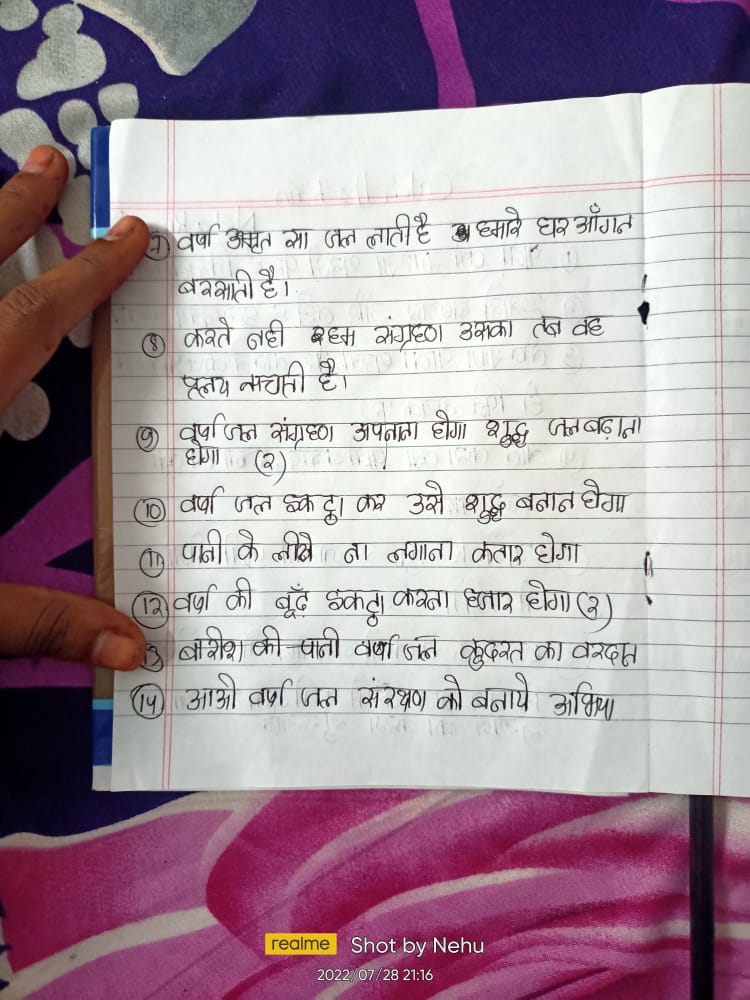 7 वर्षा अमृत सा जल लाती है हमारे घर आँगन
बरसाती है।
8 करते नही हम संग्रहण उसका तब वह
प्रलय नाचती है।
9 वर्षा जल संग्रहण अपनाना होगा शुद्ध जल बढ़ाना
होगा (२)
10 वर्षा जल इकट्ठा कर उसे शुद्ध बनान होगा
11 पानी के लीये ना लगाना कतार होगा
12 वर्षा की बूँदें इकट्ठा करना हजार होगा (२)
13 बारीश की पानी वर्षा जल कुदरत का वरदान
14 आओ वर्षा जल संरक्षण को बनाये अभिया
realme Shot by Nehu
2022/07/28 21:16